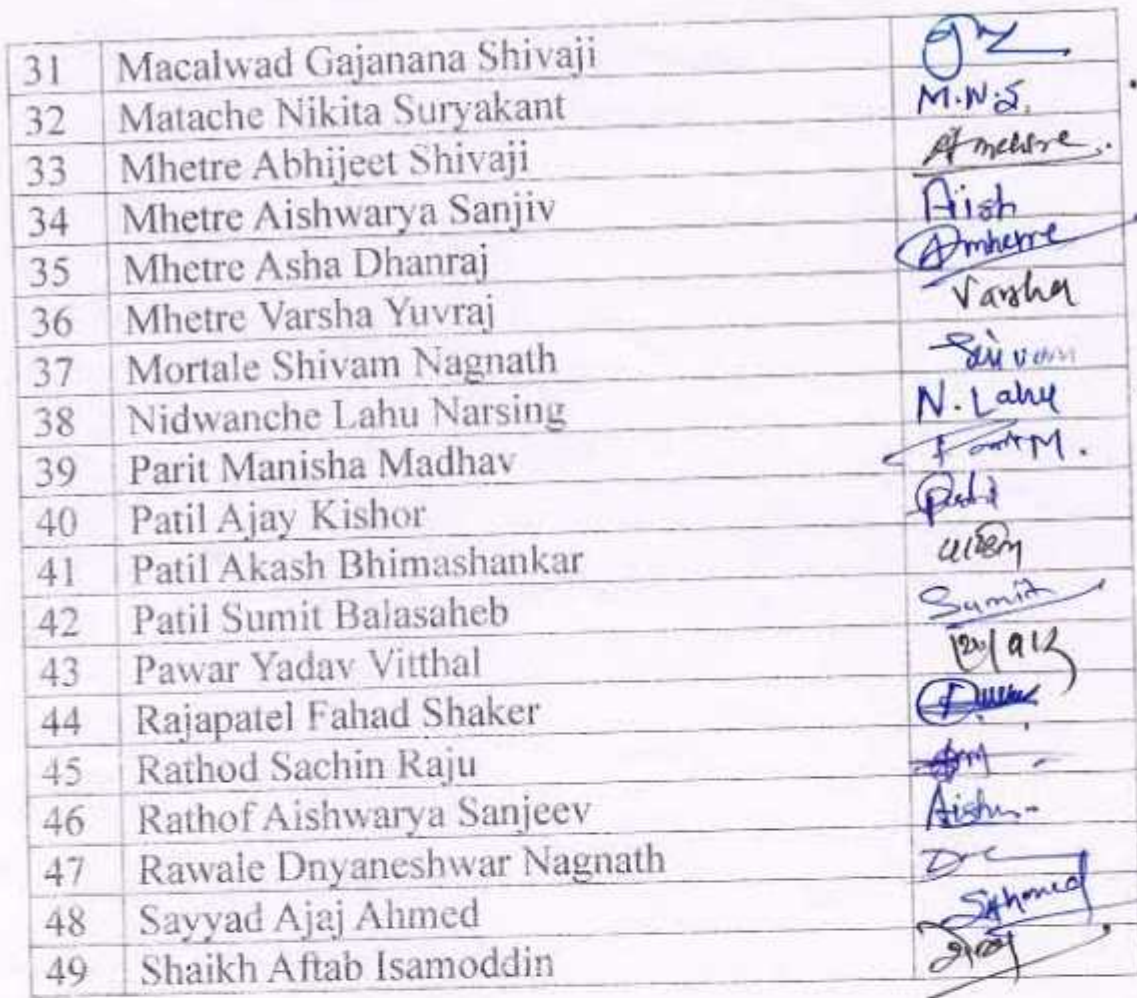 31 Macalwad Gajanana Shivaji
32 Matache Nikita Suryakant M.N.S.
33 Mhetre Abhijeet Shivaji
34 Mhetre Aishwarya Sanjiv Aish
35 Mhetre Asha Dhanraj Amhetre
36 Mhetre Varsha Yuvraj Varsha
37 Mortale Shivam Nagnath
38 Nidwanche Lahu Narsing N. Lahu
39 Parit Manisha Madhav
40 Patil Ajay Kishor
41 Patil Akash Bhimashankar
42 Patil Sumit Balasaheb Sumit
43 Pawar Yadav Vitthal
44 Rajapatel Fahad Shaker
45 Rathod Sachin Raju
46 Rathof Aishwarya Sanjeev
47 Rawale Dnyaneshwar Nagnath
48 Sayyad Ajaj Ahmed
49 Shaikh Aftab Isamoddin